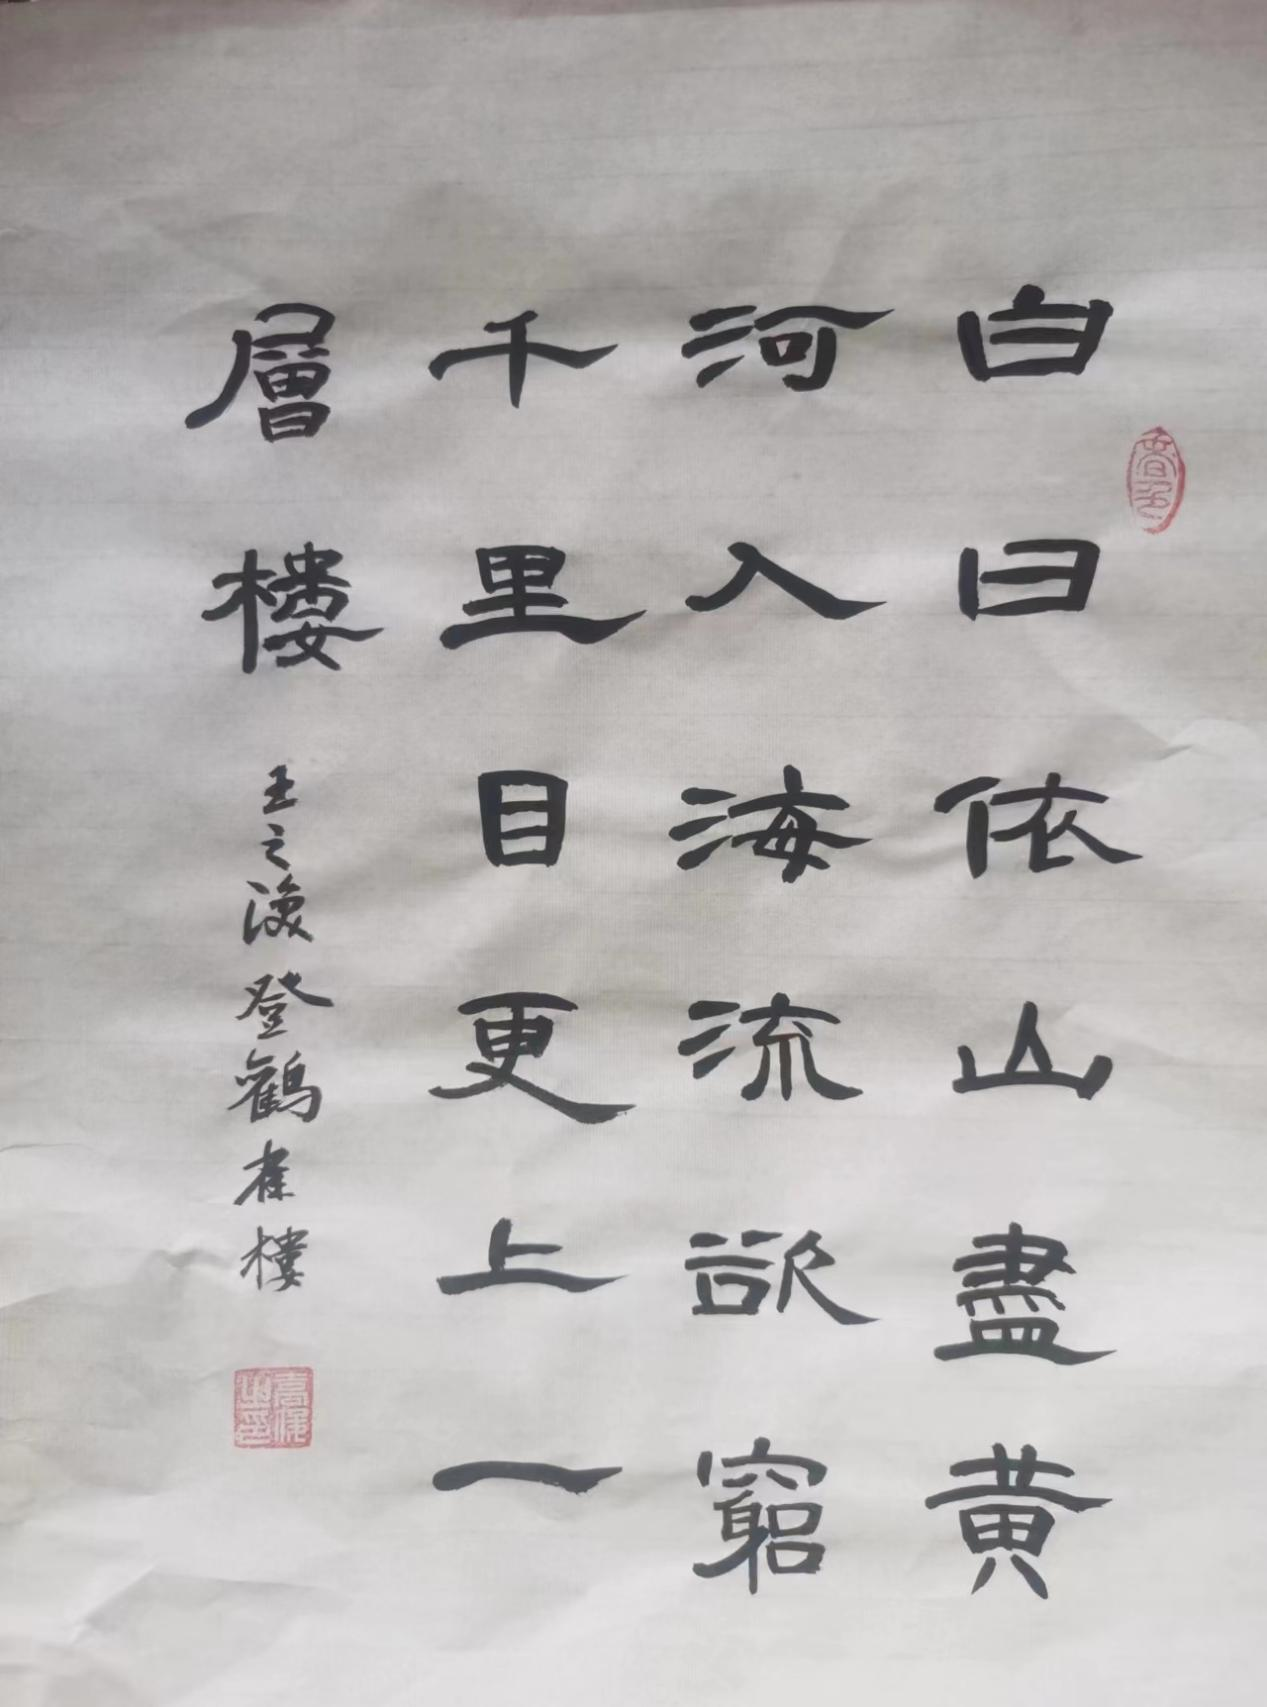 白日依山盡黄
河入海流欲窮
千里目更上一
層樓
王之渙登鸛雀樓